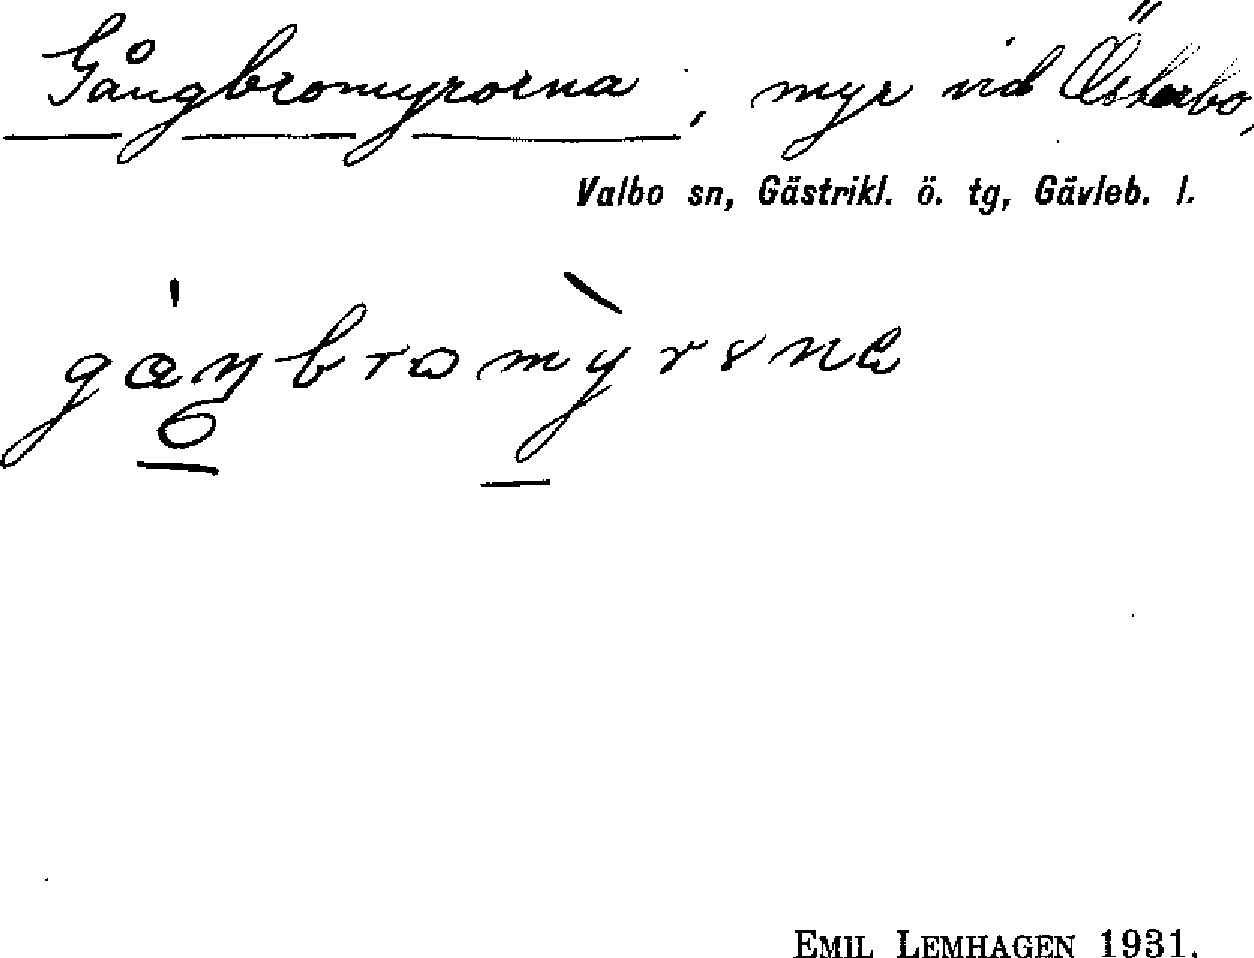 Gångbromyrorna, myr vid Österbo,
Valbo sn, Gästrikl. ö. tg, Gävleb. l.
EMIL LEMHAGEN 1931.